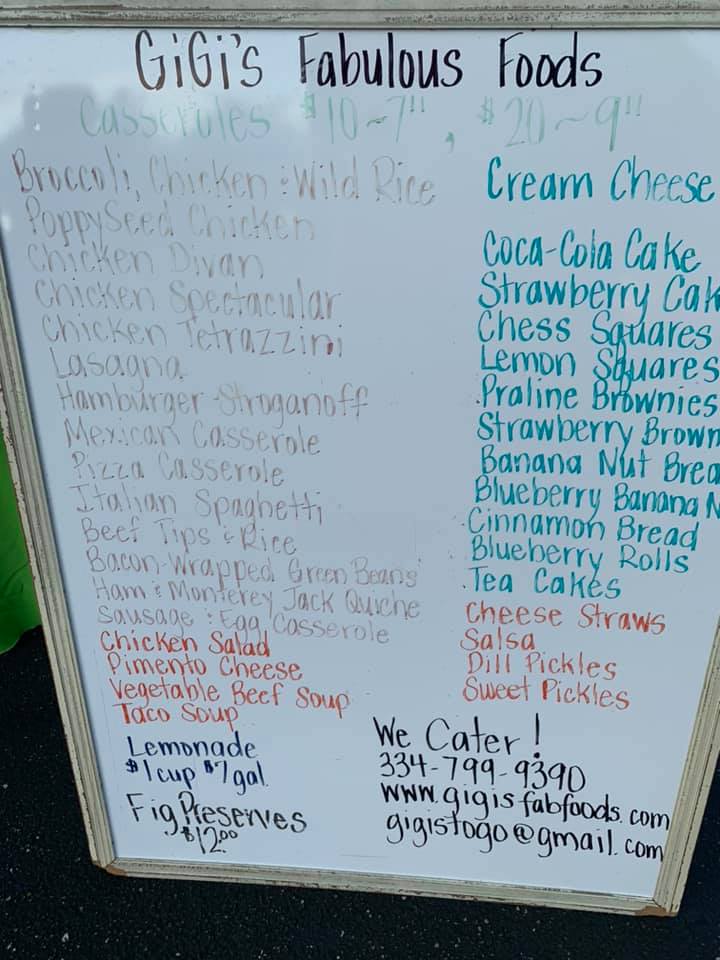 GiGi's Fabulous Foods
Casseroles $10~7", $20~9"
Broccoli, Chicken & Wild Rice
PoppySeed Chicken
Chicken Divan
Chicken Spectacular
Chicken Tetrazzini
Lasagna
Hamburger Stroganoff
Mexican Casserole
Pizza Casserole
Italian Spaghetti
Beef Tips & Rice
Bacon-Wrapped Green Beans
Ham & Monterey Jack Quiche
Sausage & Egg Casserole
Chicken Salad
Pimento Cheese
Vegetable Beef Soup
Taco Soup
Lemonade
$1 cup $7 gal.
Fig Preserves
$12.00
Cream Cheese
Coca-Cola Cake
Strawberry Cak
Chess Squares
Lemon Squares
Praline Brownies
Strawberry Brown
Banana Nut Brea
Blueberry Banana N
Cinnamon Bread
Blueberry Rolls
Tea Cakes
Cheese Straws
Salsa
Dill Pickles
Sweet Pickles
We Cater!
334-799-9390
www.gigisfabfoods.com
gigistogo@gmail.com